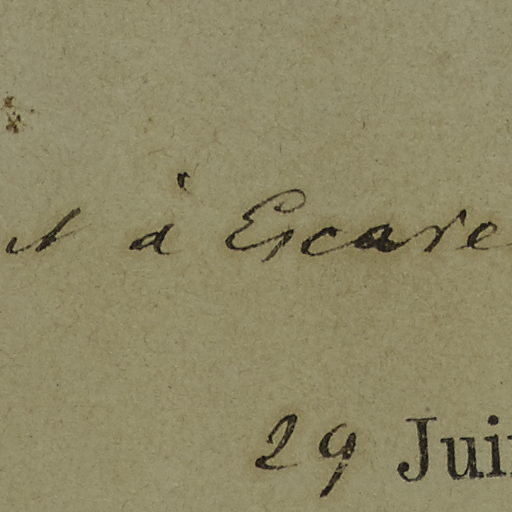 à Escare
29 Jui